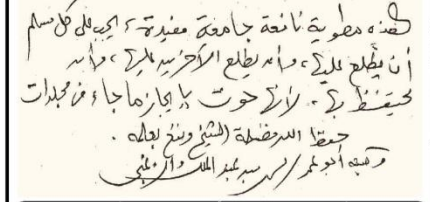 هذه مطوية نافعة جامعة مفيدة، يجب على كل مسلم
أن يطلع عليها، وأن يطلع الآخرين عليها، وأن
يحتفظ بها. لأنها حوت بإيجاز ما جاء في مجلدات
حفظ الله فضيلة الشيخ ونفع بعلمه.
وكتبه أبو عمر عبد الملك